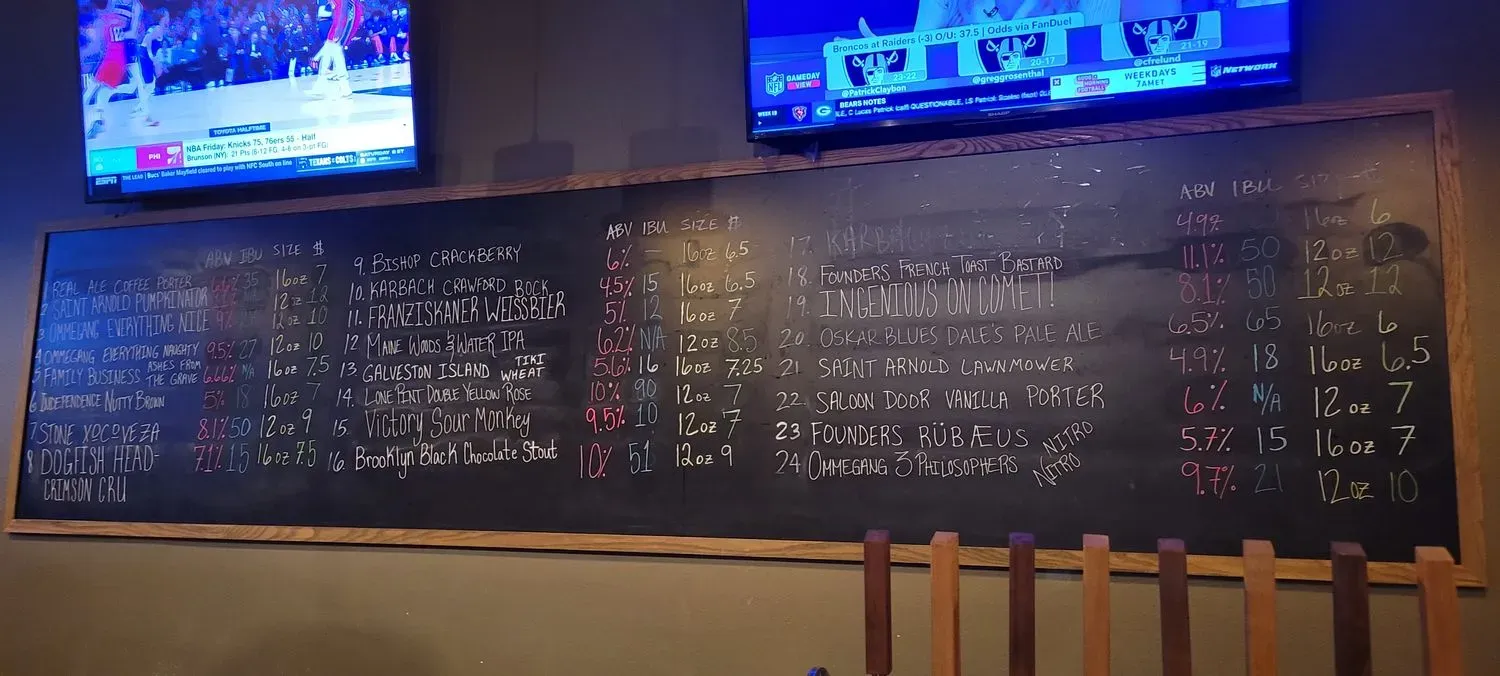 TOYOTA HALFTIME
NBA Friday: Knicks 75, 76ers 55 - Half
PHI
Brunson (NY): 21 Pts (8-12 FG, 4-6 on 3-pt FG)
ESPN
THE LEAD | Bucs' Baker Mayfield cleared to play with NFC South on line
TEXANS COLTS
Broncos at Raiders (-3) O/U: 37.5 | Odds via FanDuel
23-22
20-17
21-19
@PatrickClaybon
@greggrosenthal
@cfrelund
NFL GAMEDAY VIEW
WEEKDAYS 7AM ET
NFL NETWORK
WEEK 18
BEARS NOTES
SHARP
ABV IBU SIZE $
1 REAL ALE COFFEE PORTER 35 16oz 7
2 SAINT ARNOLD PUMPKINATOR 12oz 12
3 OMMEGANG EVERYTHING NICE 9% 12oz 10
4 OMMEGANG EVERYTHING NAUGHTY 9.5% 27 12oz 10
5 FAMILY BUSINESS ASHES FROM THE GRAVE 6.66% N/A 16oz 7.5
6 INDEPENDENCE NUTTY BROWN 5% 18 16oz 7
7 STONE XOCOVEZA 8.1% 50 12oz 9
8 DOGFISH HEAD- 7.1% 15 16oz 7.5
CRIMSON CRU
ABV IBU SIZE $
9. BISHOP CRACKBERRY 6% — 16oz 6.5
10. KARBACH CRAWFORD BOCK 4.5% 15 16oz 6.5
11. FRANZISKANER WEISSBIER 5% 12 16oz 7
12 MAINE WOODS & WATER IPA 6.2% N/A 12oz 8.5
13 GALVESTON ISLAND TIKI WHEAT 5.6% 16 16oz 7.25
14. LONE PINT DOUBLE YELLOW ROSE 10% 90 12oz 7
15. VICTORY SOUR MONKEY 9.5% 10 12oz 7
16. Brooklyn Black Chocolate Stout 10% 51 12oz 9
ABV IBU SIZE $
17. KARBACH 4.9% 16oz 6
18. FOUNDERS FRENCH TOAST BASTARD 11.1% 50 12oz 12
19. INGENIOUS ON COMET! 8.1% 50 12oz 12
20. OSKAR BLUES DALE'S PALE ALE 6.5% 65 16oz 6
21. SAINT ARNOLD LAWNMOWER 4.9% 18 16oz 6.5
22. SALOON DOOR VANILLA PORTER 6% N/A 12oz 7
23 FOUNDERS RÜBÆUS NITRO 5.7% 15 16oz 7
24 OMMEGANG 3 PHILOSOPHERS NITRO 9.7% 21 12oz 10